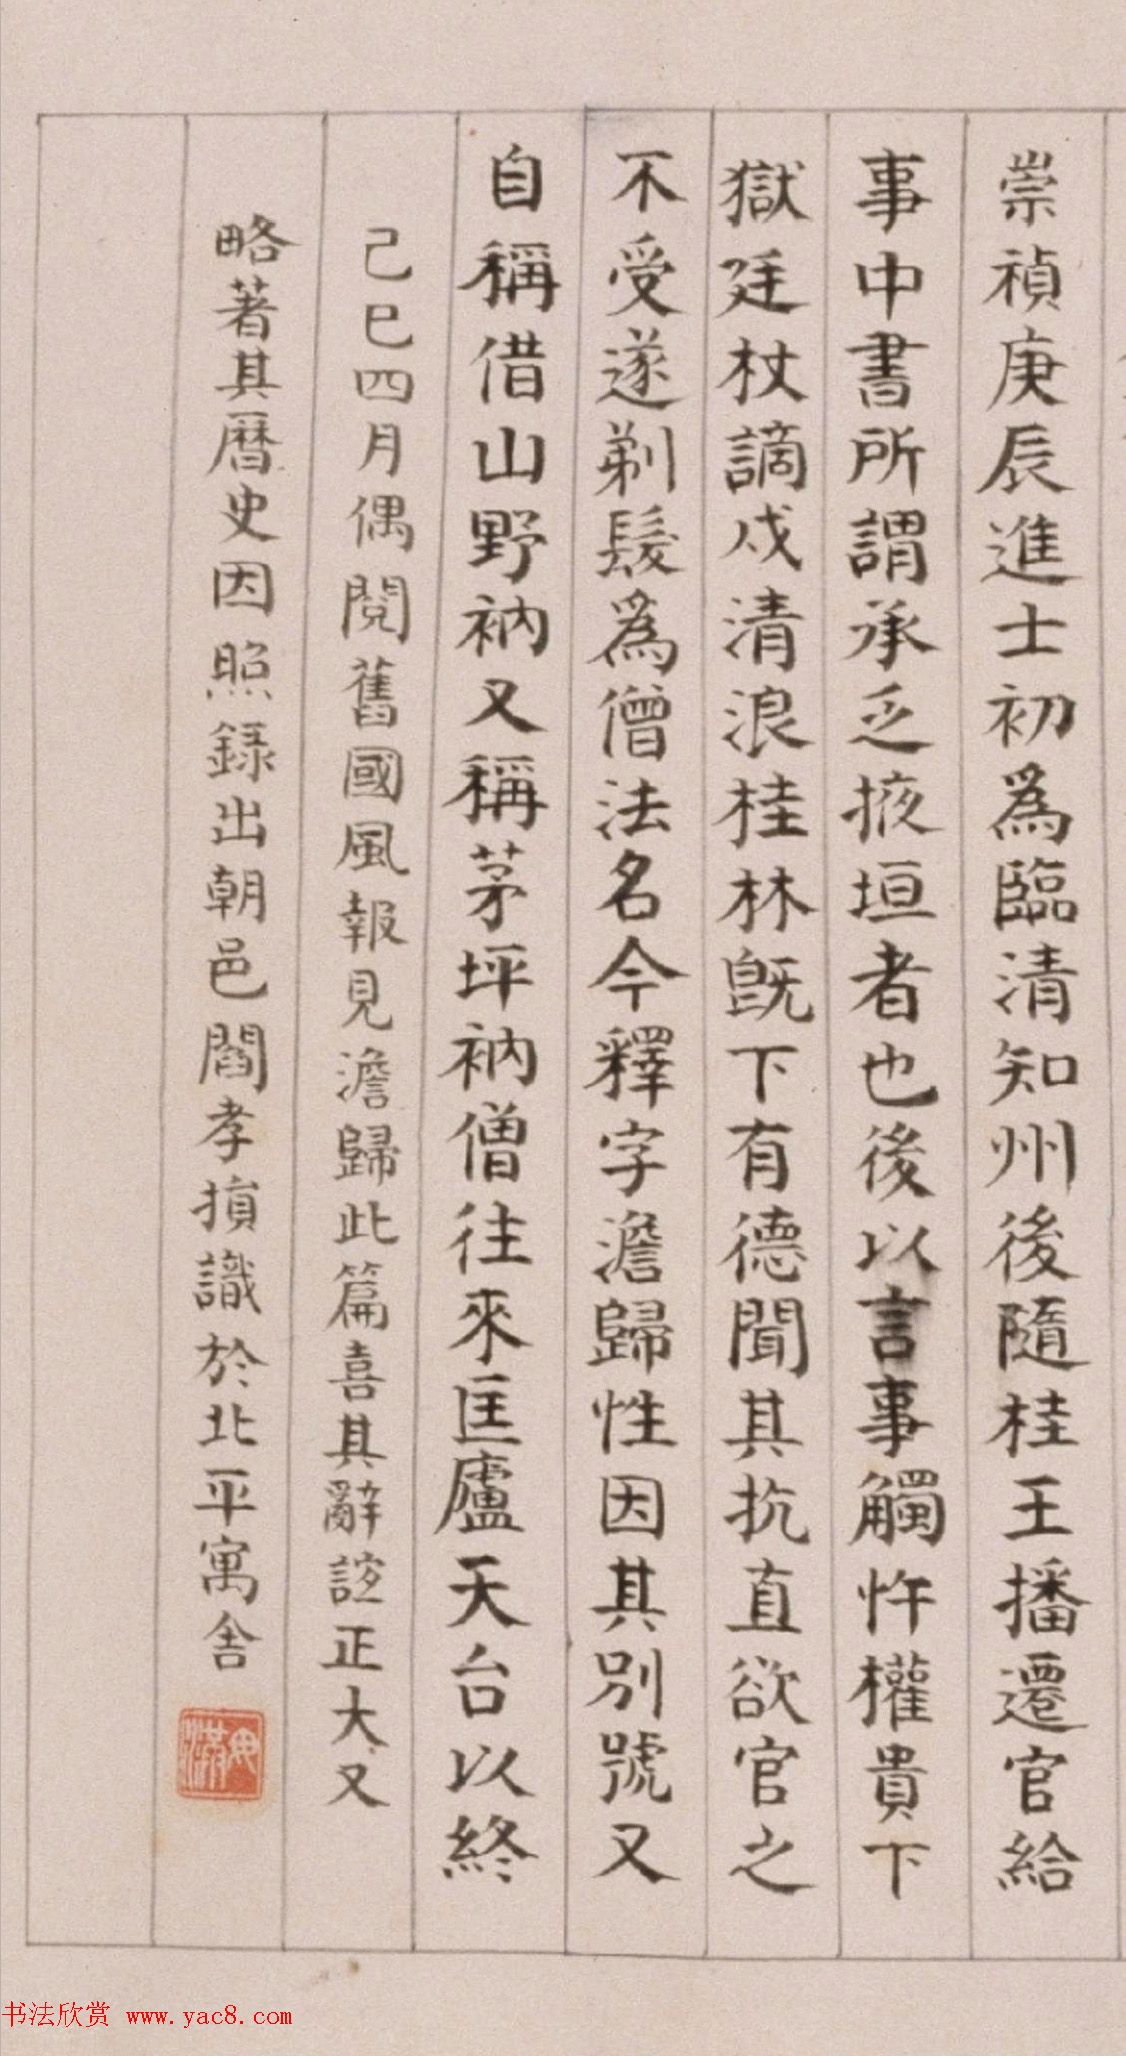 崇禎庚辰進士初爲臨清知州後隨桂王播遷官給
事中書所謂承乏掖垣者也後以言事觸忤權貴下
獄廷杖謫戍清浪桂林既下有德聞其抗直欲官之
不受遂剃髮爲僧法名今釋字澹歸性因其別號又
自稱借山野衲又稱茅坪衲僧往來匡廬天台以終
己巳四月偶閱舊國風報見澹歸此篇喜其辭誼正大又
略著其曆史因照錄出朝邑閻孝損識於北平寓舍
书法欣赏 www.yac8.com